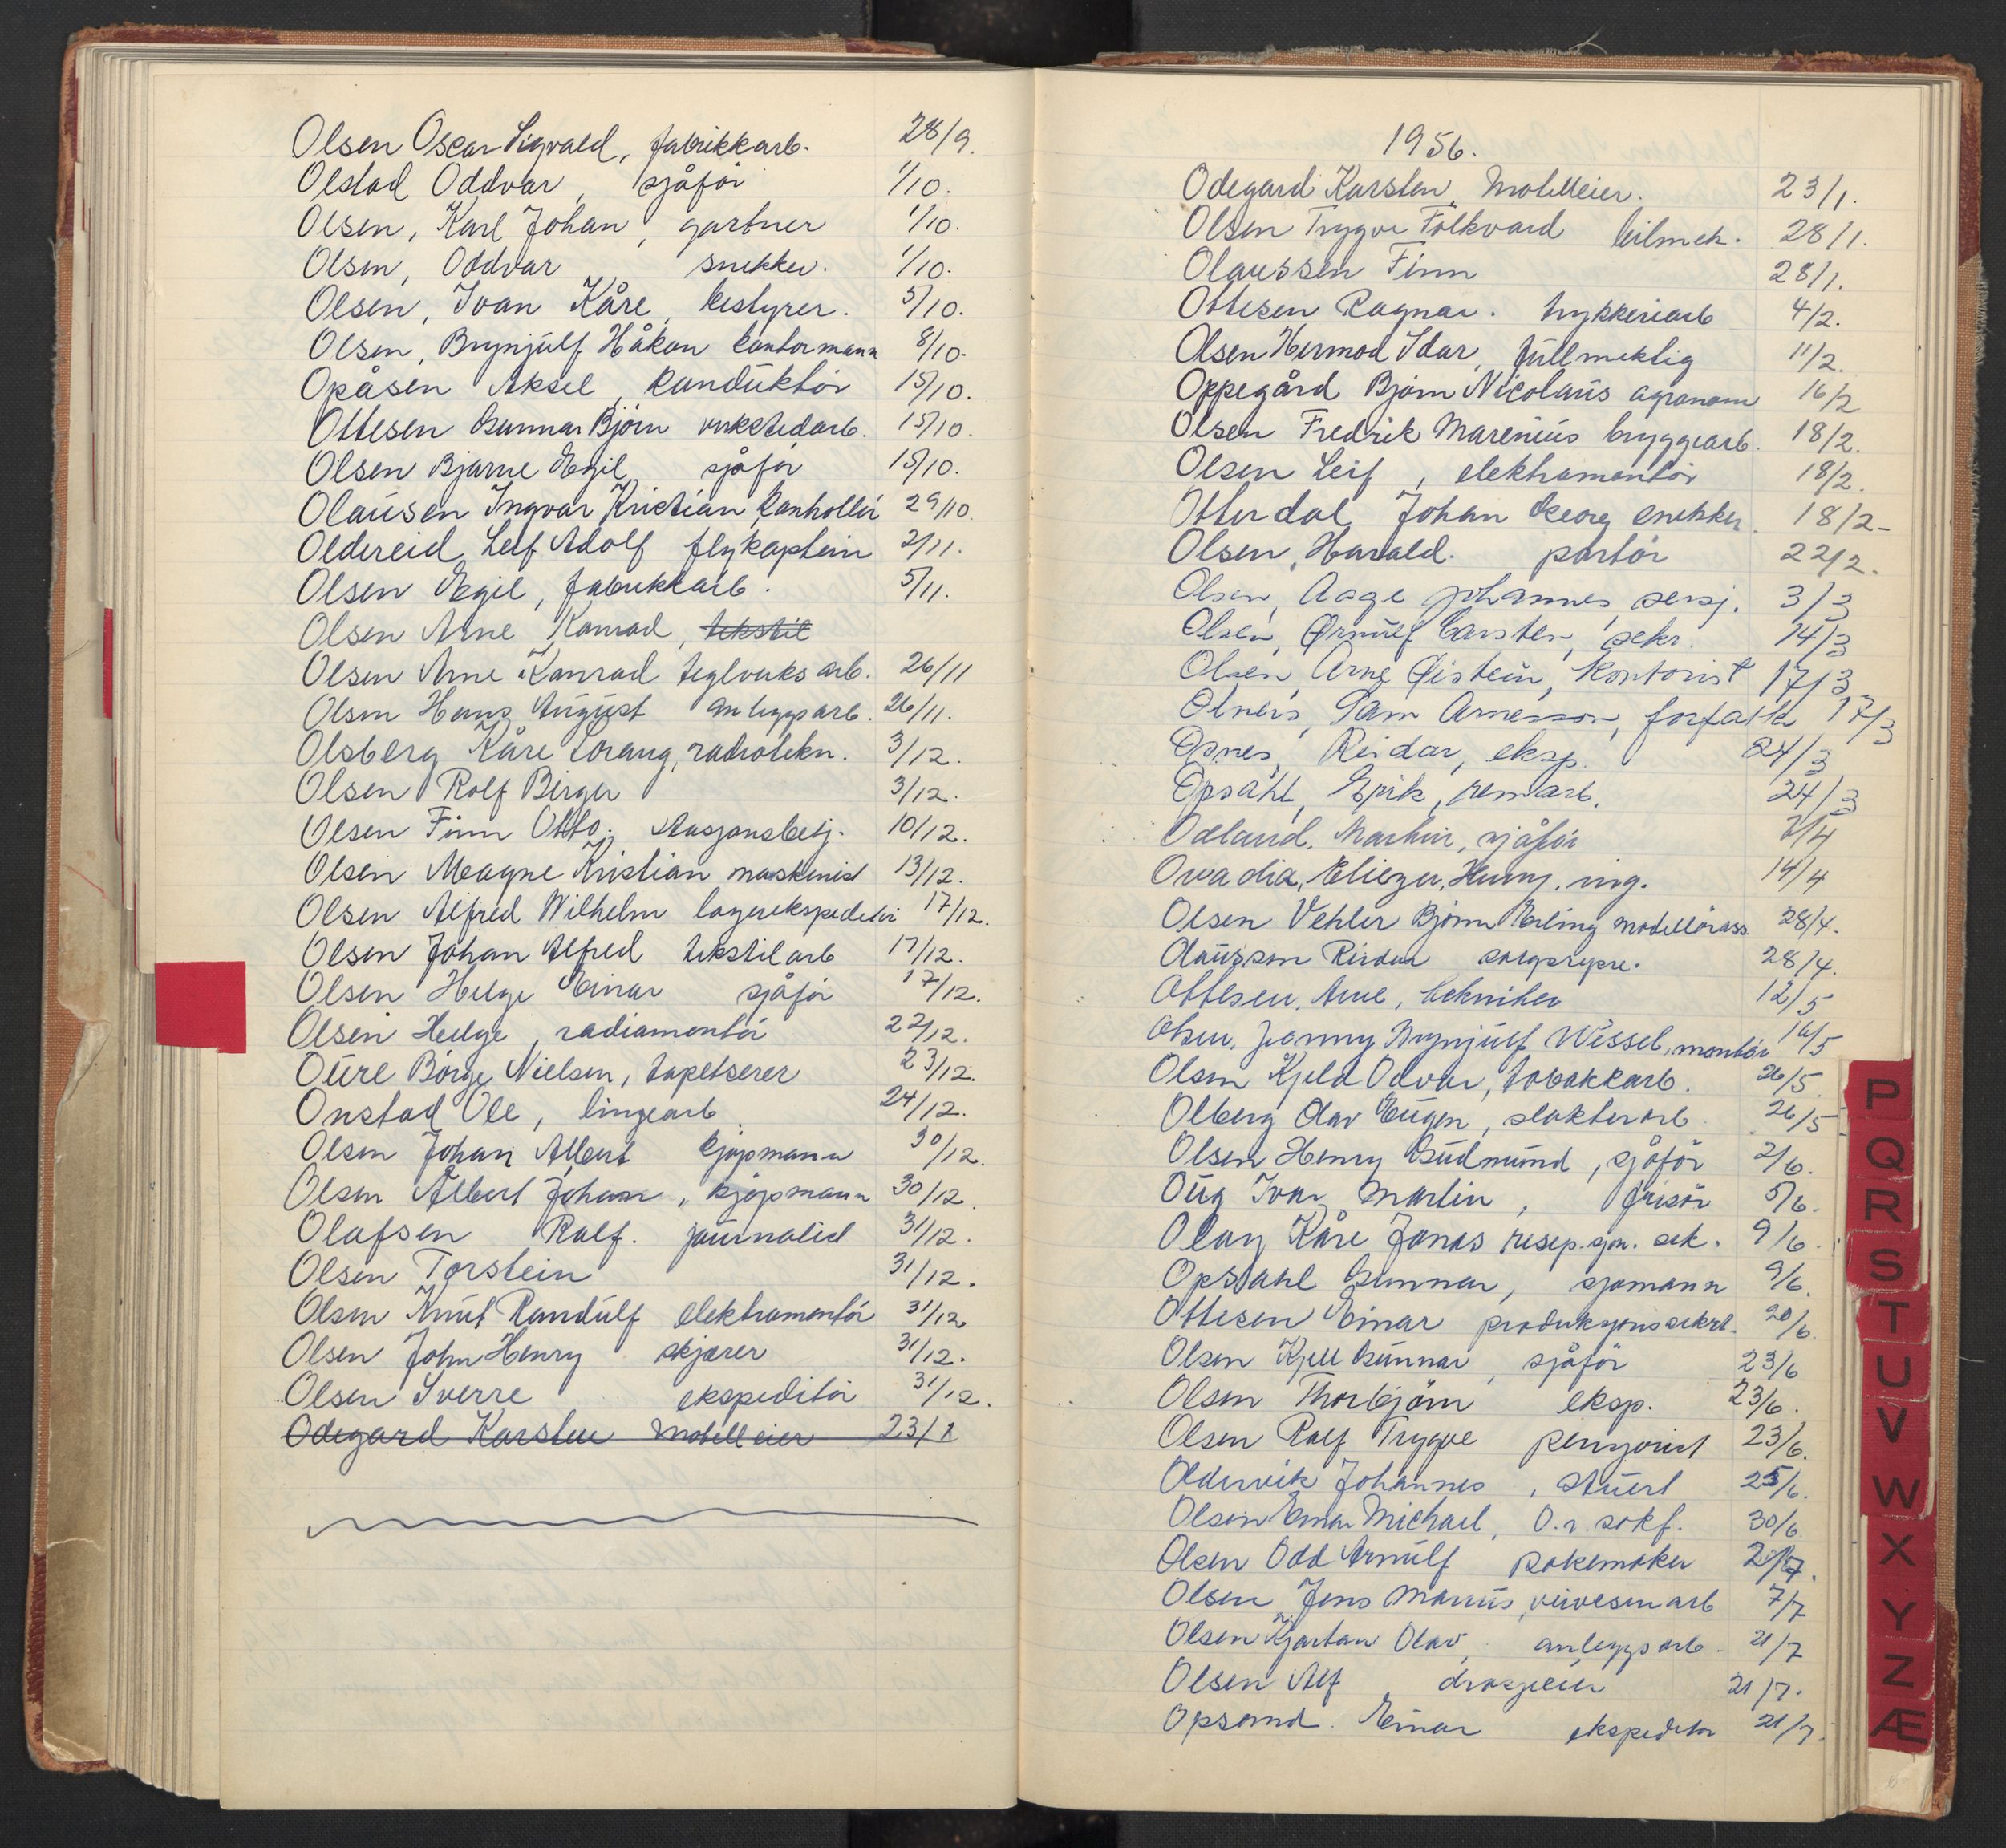 Olsen Oscar Sigvald, fabrikkarb. 28/9.
Olstad Oddvar, sjåför 1/10.
Olsen, Karl Johan, gartner 1/10.
Olsen, Oddvar, snekker. 1/10.
Olsen, Ivan Kåre, bestyrer. 5/10.
Olsen, Brynjulf Håkon kontormann 8/10.
Opåsen Aksel, konduktör 15/10.
Ottesen Gunnar Björn verkstedarb. 15/10.
Olsen Bjarne Egil, sjåför 15/10.
Olausen Ingvar Kristian, kontollör 29/10.
Oldereid, Leif Adolf flykaptein 2/11.
Olsen Egil, fabrikkarb. 5/11.
Olsen Arne Konrad, tekstil
Olsen Arne Konrad teglverksarb. 26/11
Olsen Hans August anleggsarb. 26/11.
Olsberg Kåre Lorang, radiotekn. 3/12.
Olsen Rolf Birger 3/12.
Olsen Finn Otto, stasjonsbetj. 10/12.
Olsen Magne Kristian maskinist 13/12.
Olsen Alfred Wilhelm lagerekspeditör 17/12.
Olsen Johan Alfred tekstilarb 17/12.
Olsen Helge Einar sjåför 17/12.
Olsen Helge, radiomontör 22/12.
Oure Börge Nielsen, tapetserer 23/12.
Onstad Ole, lingearb. 24/12.
Olsen Johan Albert kjöpmann 30/12.
Olsen Albert Johan, kjöpmann 30/12.
Olafsen Ralf. journalist 31/12.
Olsen Torstein 31/12.
Olsen Knut Randulf elektromontör 31/12
Olsen John Henry skjærer 31/12.
Olsen Sverre ekspeditör 31/12.
Odegard Karsten Motelleier 23/1
1956.
Odegard Karsten, Motelleier. 23/1.
Olsen Trygve Folkvard bilmek. 28/1.
Olaussen Finn 28/1.
Ottesen Ragnar. trykkeriarb 4/2.
Olsen Hermod Idar, fullmektig 11/2.
Oppegård Björn Nicolaus agronom 16/2
Olsen Fredrik Marenius bryggearb. 18/2.
Olsen Leif, elektromontör 18/2.
Otterdal, Johan Georg snekker. 18/2-
Olsen, Harald. portör 22/2.
Olsen, Aage Johannes, sersj. 3/3
Olsen, Ørnulf Carsten, sekr. 14/3
Olsen, Arne Øistein, Kontorist 17/3
Olneis, Sam Arnesson, forfatter 17/3
Osnes, Reidar, eksp. 24/3
Opsahl, Erik, rensarb. 24/3
Odland, Martin, sjåför 7/4
Ovadia, Eliezer, Henry, ing. 14/4
Olsen Vehler Björn Erling modellörass 28/4.
Olausson Reidar salgsrepre. 28/4.
Ottesen, Arne, tekniker 12/5
Olsen, Jonny Brynjulf Wessel, montör 16/5
Olsen Kjeld Odvar, tobakkarb. 26/5.
Olberg Olav Eugen, slakterarb. 26/5
Olsen Henry Gudmund, sjåför 2/6.
Oug Ivar Martin, frisör 5/6.
Olay Kåre Jonas resep.sjon. sek. 9/6.
Opsdahl Gunnar, sjömann 9/6.
Ottesen Einar produksjonssekret. 20/6.
Olsen Kjell Gunnar, sjåför 23/6
Olsen Thorbjörn eksp. 23/6.
Olsen Ralf Trygve pensjonist 23/6.
Oldervik Johannes, stuert 25/6.
Olsen Einar Michael, O.r. sakf. 30/6.
Olsen Odd Arnulf pakkmaker
Olsen Jens Marius, veivesenarb 7/7
Olsen Kjartan Olav, anleggsarb. 21/7
Olsen Alf, drosjeeier 21/7.
Opsand. Einar ekspeditör 21/7.
P
Q
R
S
T
U
V
W
X
Y
Z
Æ